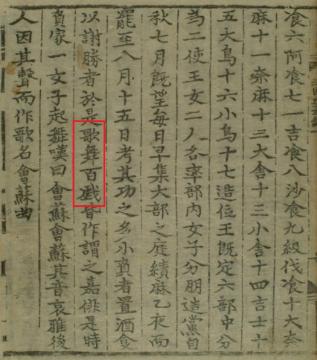 飡六阿飡七一吉飡八沙飡九級伐飡十大奈
麻十一奈麻十二大舍十三小舍十四吉士十
五大烏十六小烏十七造位王旣定六部中分
爲二使王女二人各率部內女子分朋造黨自
秋七月旣望每日早集大部之庭績麻乙夜而
罷至八月十五日考其功之多小負者置酒食
以謝勝者於是歌舞百戱皆作謂之嘉俳是時
負家一女子起舞嘆曰會蘇會蘇其音哀雅後
人因其聲而作歌名會蘇曲